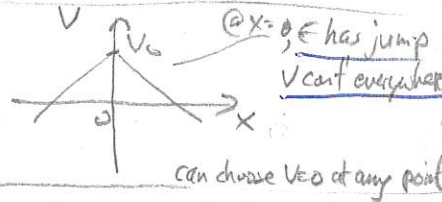 V
V₀
@ x=0, E has jump
V cont everywhere
0
x
can choose V=0 at any point